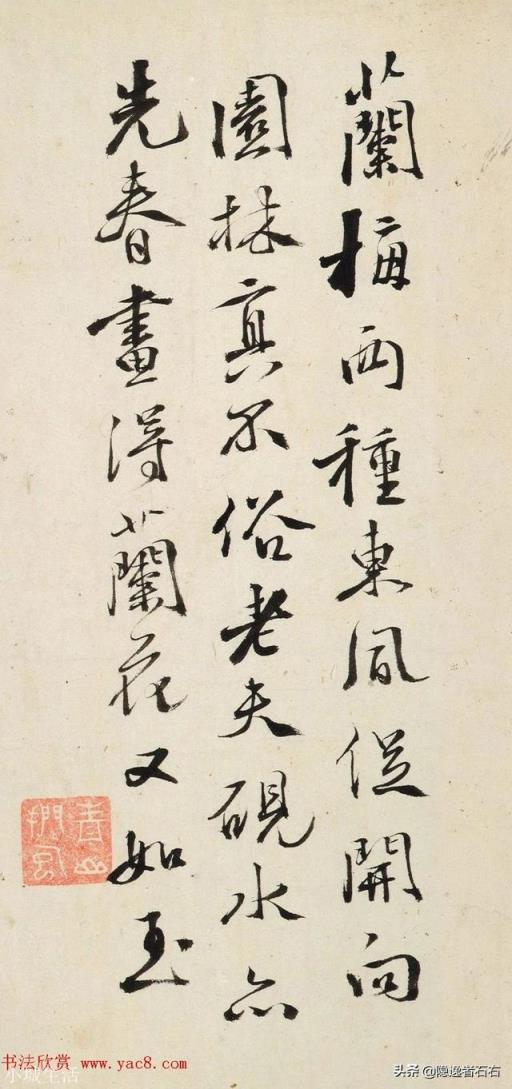 蘭梅两種東風促開向
園林真不俗老夫硯水亦
先春畫得蘭花又如玉
青山
书法欣赏 www.yac8.com
小城生活
头条 @隐逸者石右